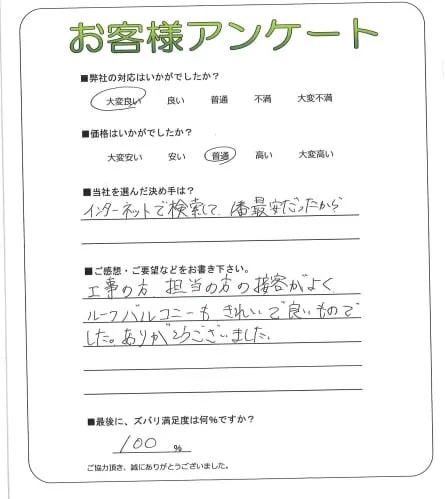 お客様アンケート
■弊社の対応はいかがでしたか？
大変良い 良い 普通 不満 大変不満
■価格はいかがでしたか？
大変安い 安い 普通 高い 大変高い
■当社を選んだ決め手は？
インターネットで検索して、1番最安だったから
■ご感想・ご要望などをお書き下さい。
工事の方、担当の方の接客がよく
ルーフバルコニーもきれいで良いもので
した。ありがとうございました。
■最後に、ズバリ満足度は何％ですか？
100 ％
ご協力頂き、誠にありがとうございました。